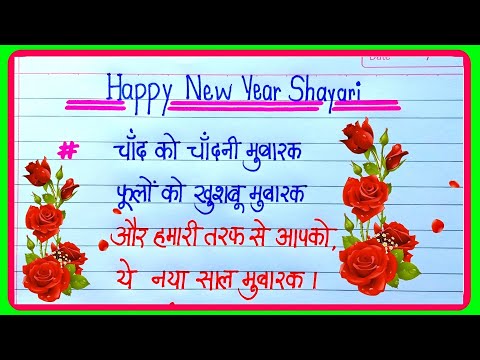 Happy New Year Shayari
# चाँद को चाँदनी मुबारक
फूलों को खुशबू मुबारक
और हमारी तरफ से आपको,
ये नया साल मुबारक।